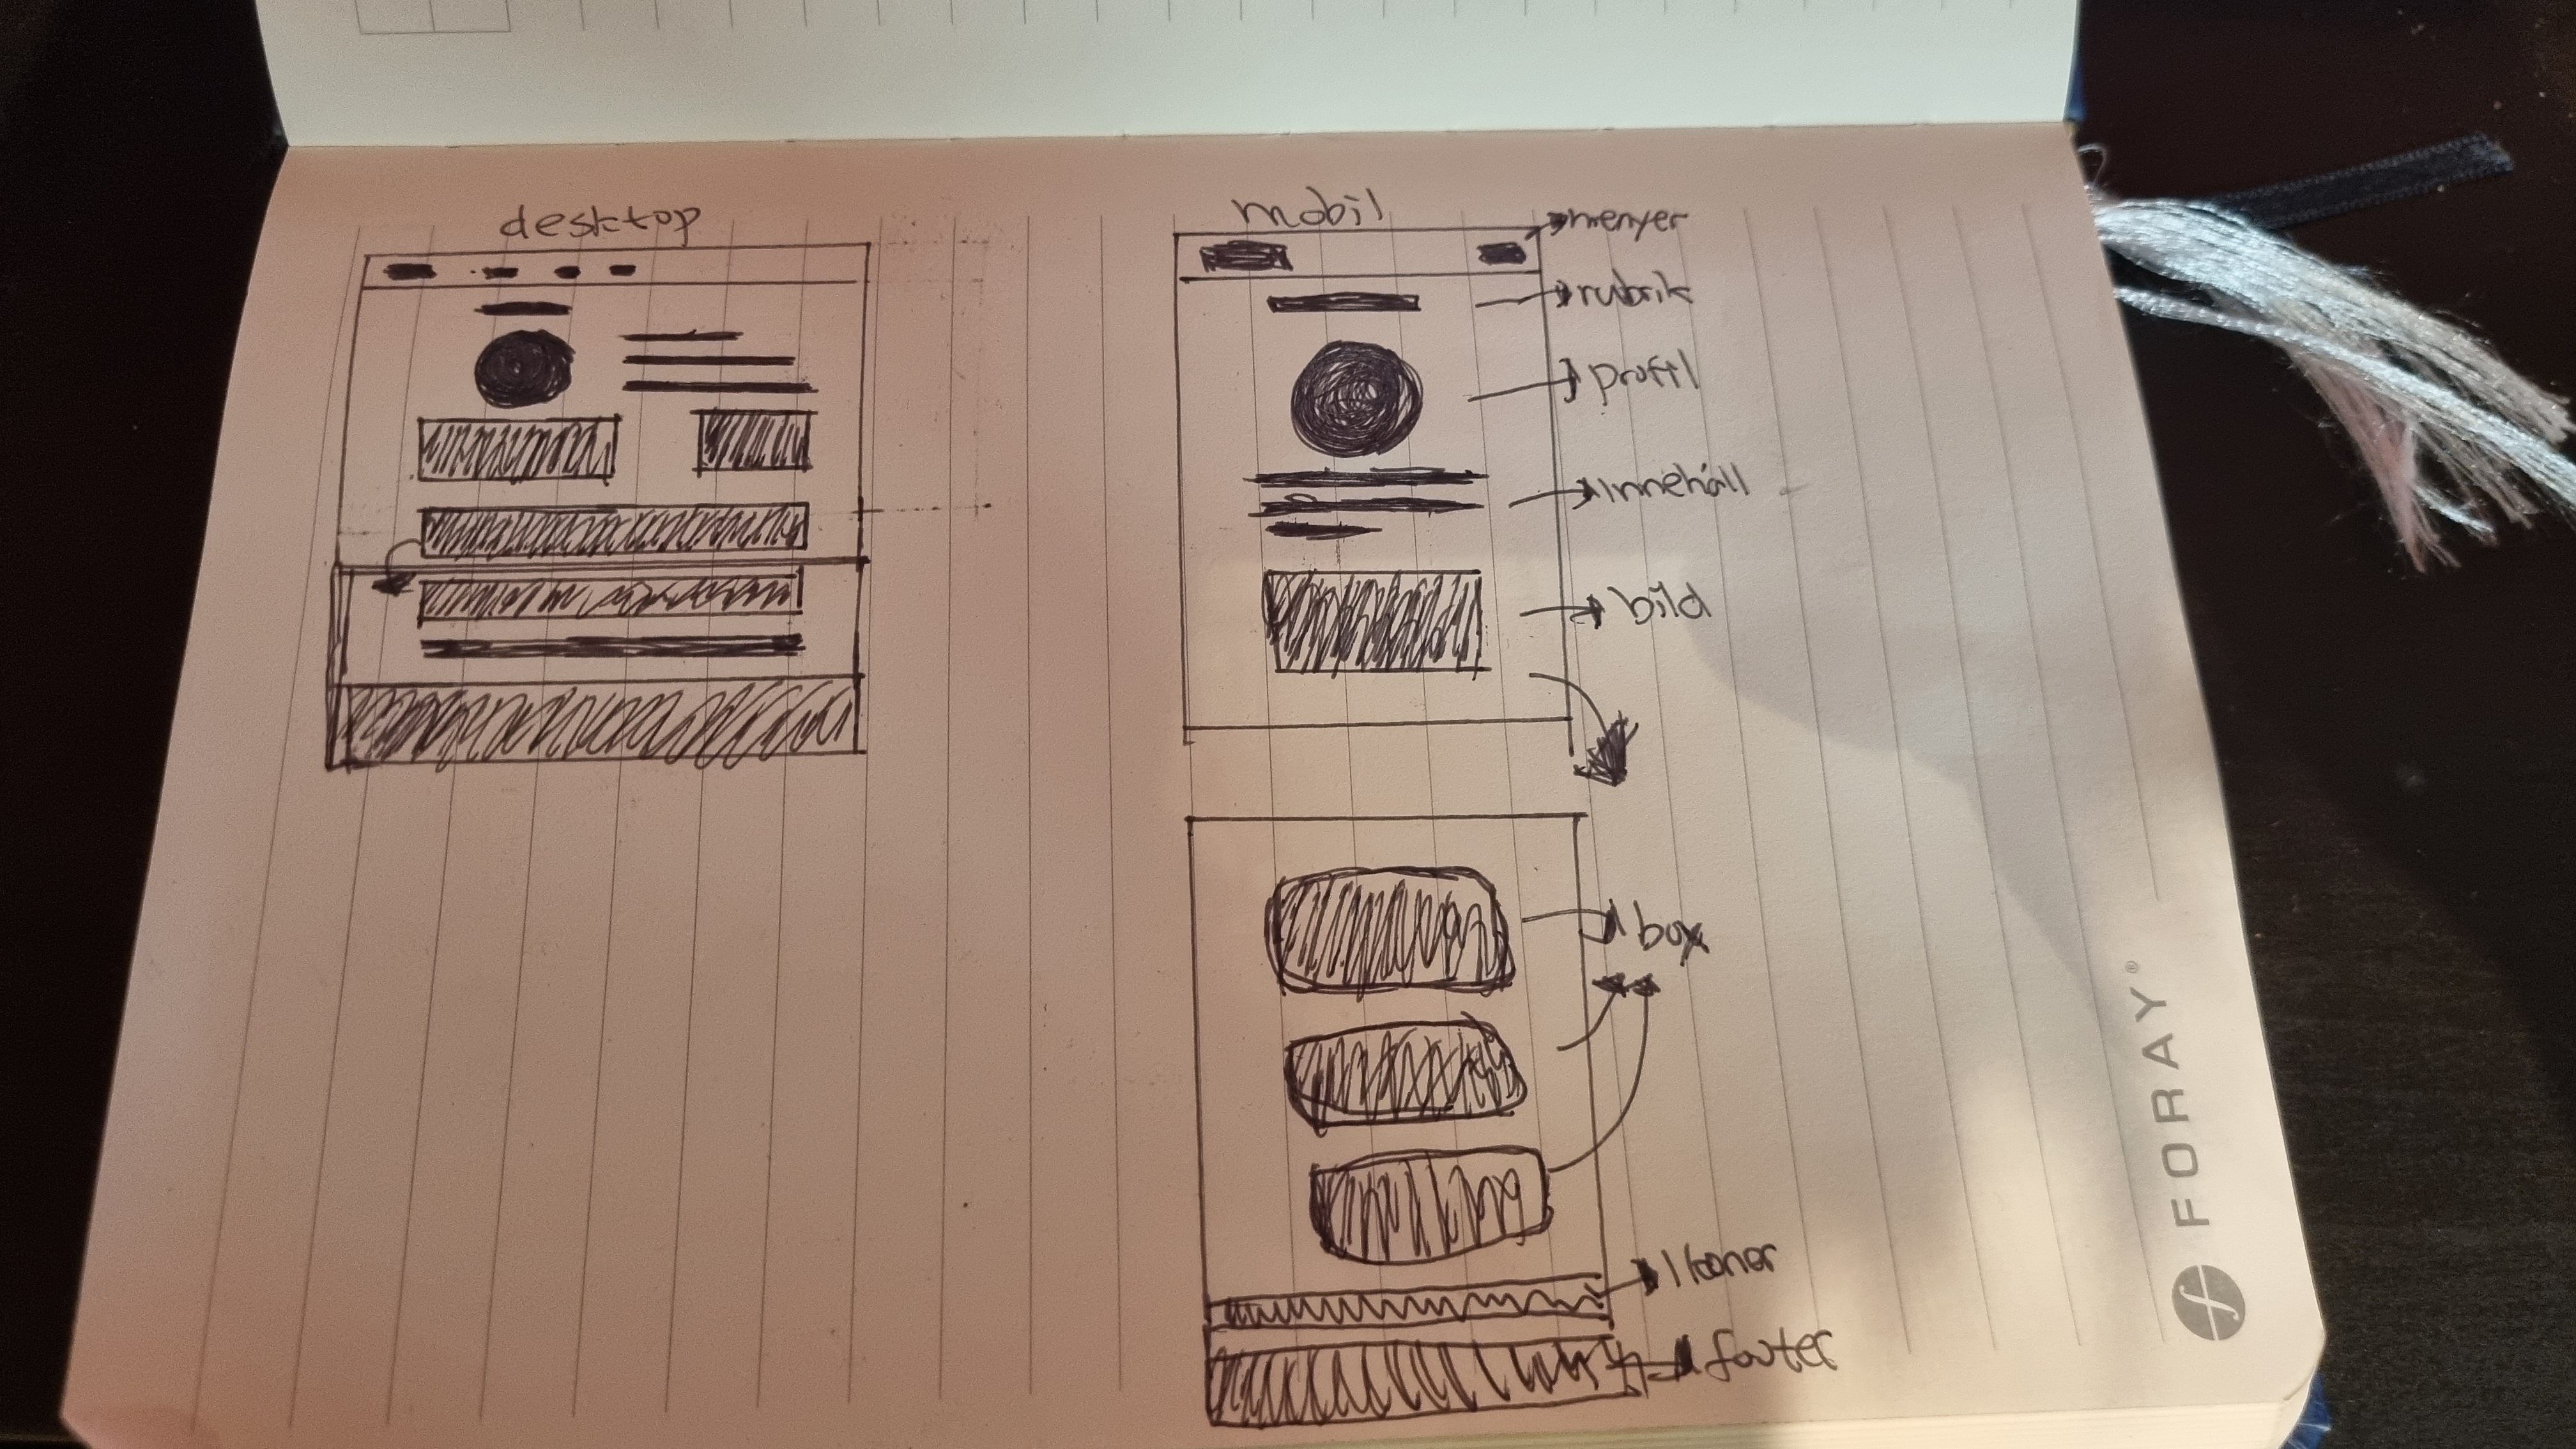 desktop
mobil
menyer
rubrik
profil
innehåll
bild
box
Ikoner
footer
FORAY®